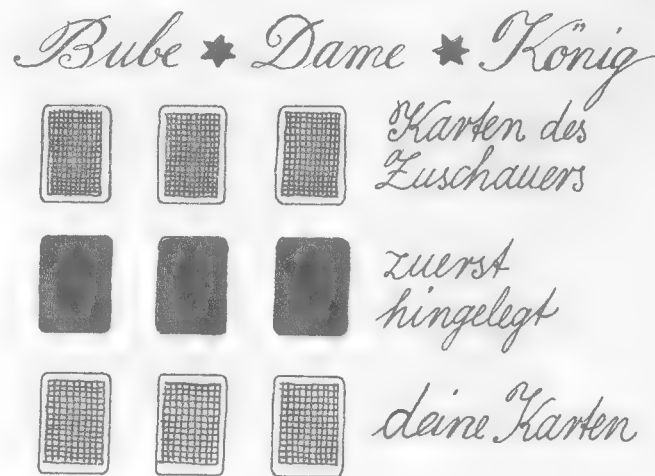 Bube ✶ Dame ✶ König
Karten des
Zuschauers
zuerst
hingelegt
deine Karten